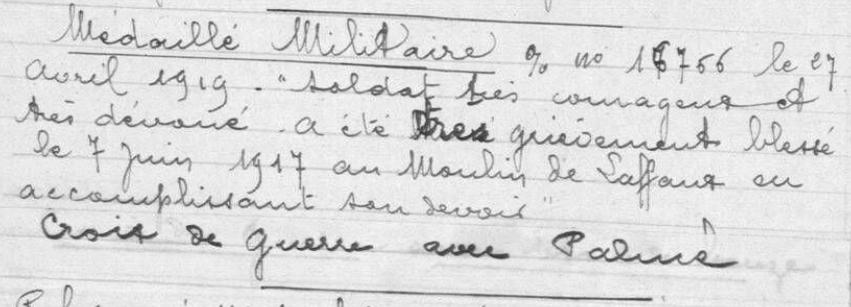 Médaillé Militaire % no 16766 le 27
avril 1919. "soldat très courageux et
très dévoué. a été très grièvement blessé
le 7 Juin 1917 au Moulin de Laffaux en
accomplissant son devoir"
Croix de guerre avec Palme